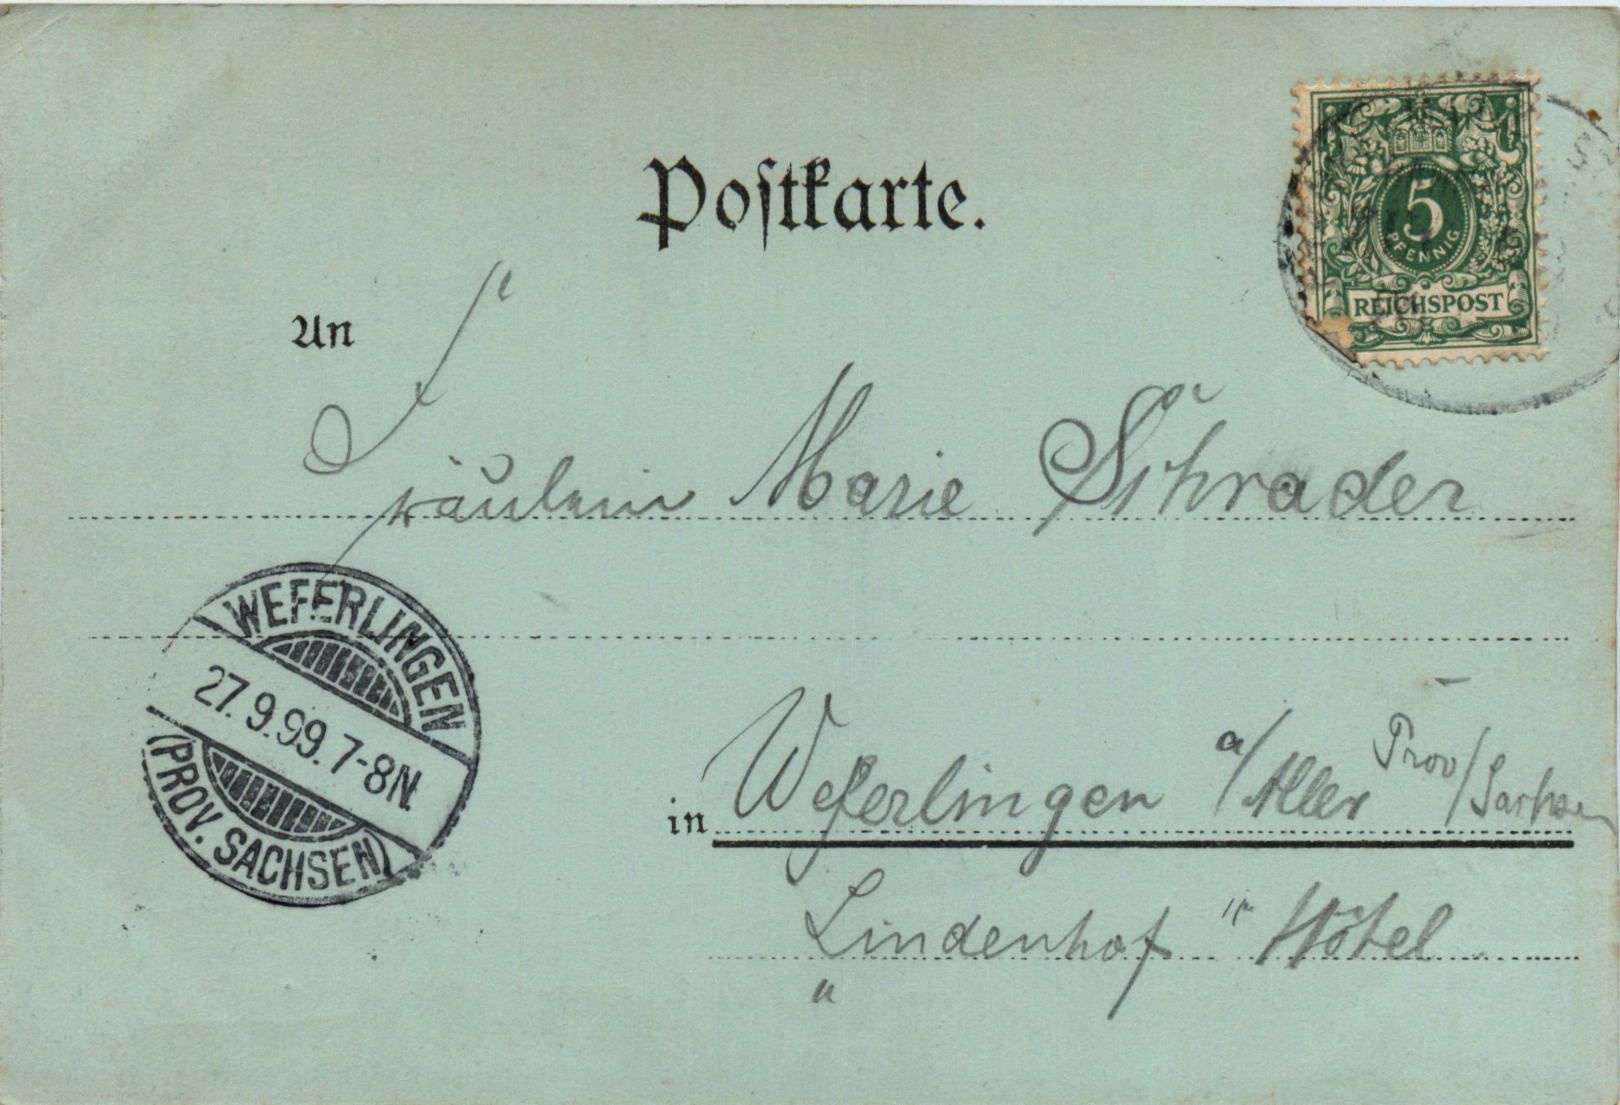 Postkarte.
5
PFENNIG
REICHSPOST
An
Fräulein Marie Schrader
WEFERLINGEN
27.9.99.7-8N.
(PROV. SACHSEN)
in Weferlingen a/Aller Prov/Sachsen
„Lindenhof" Hôtel